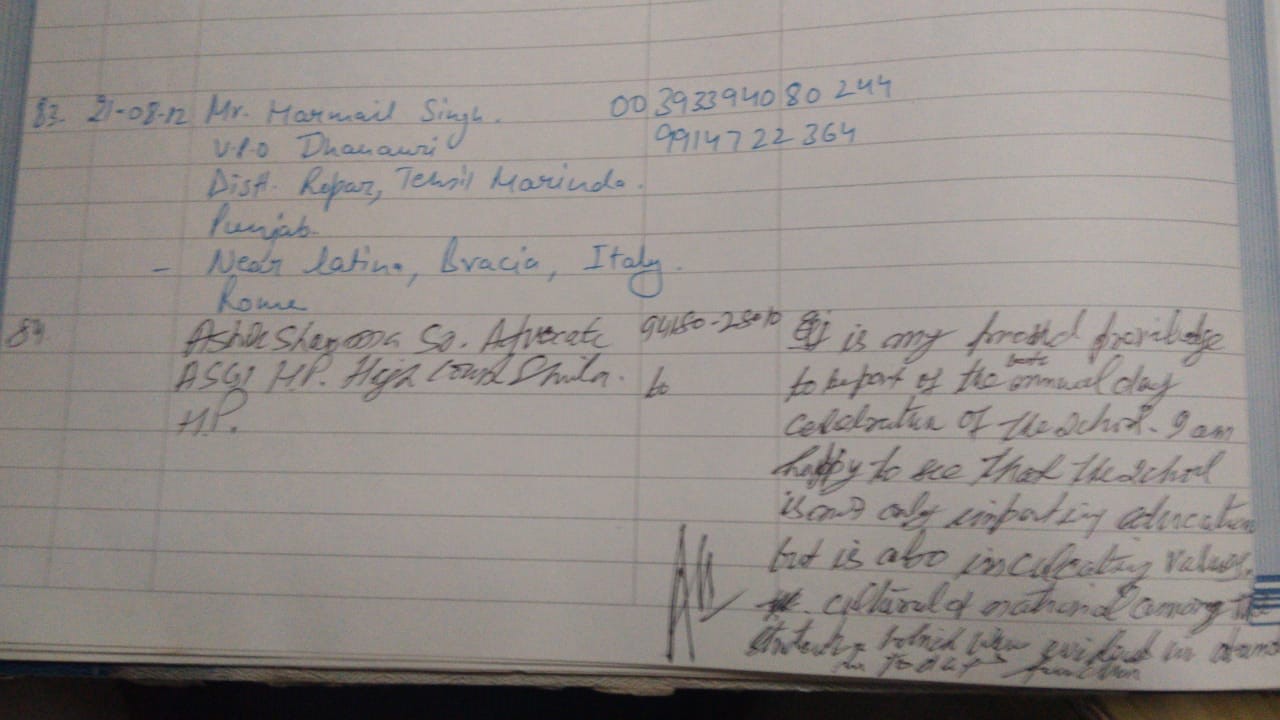 83. 21-08-12 Mr. Harmail Singh. 00 3933940 80 244
V.P.O Dhanauri 9914722 364
Distt. Ropar, Tehsil Morinda.
Punjab.
- Near latina, Bracia, Italy.
Rome
84. Ashok Sharma Sr. Advocate 94180-25010
ASGI H.P. High Court Shimla. to
H.P.
It is my proud privilege
to be part of the annual day
celebration of the School. I am
happy to see that the School
is not only imparting education
but is also inculcating values,
cultural & national among the
students which was evident in
in today's function